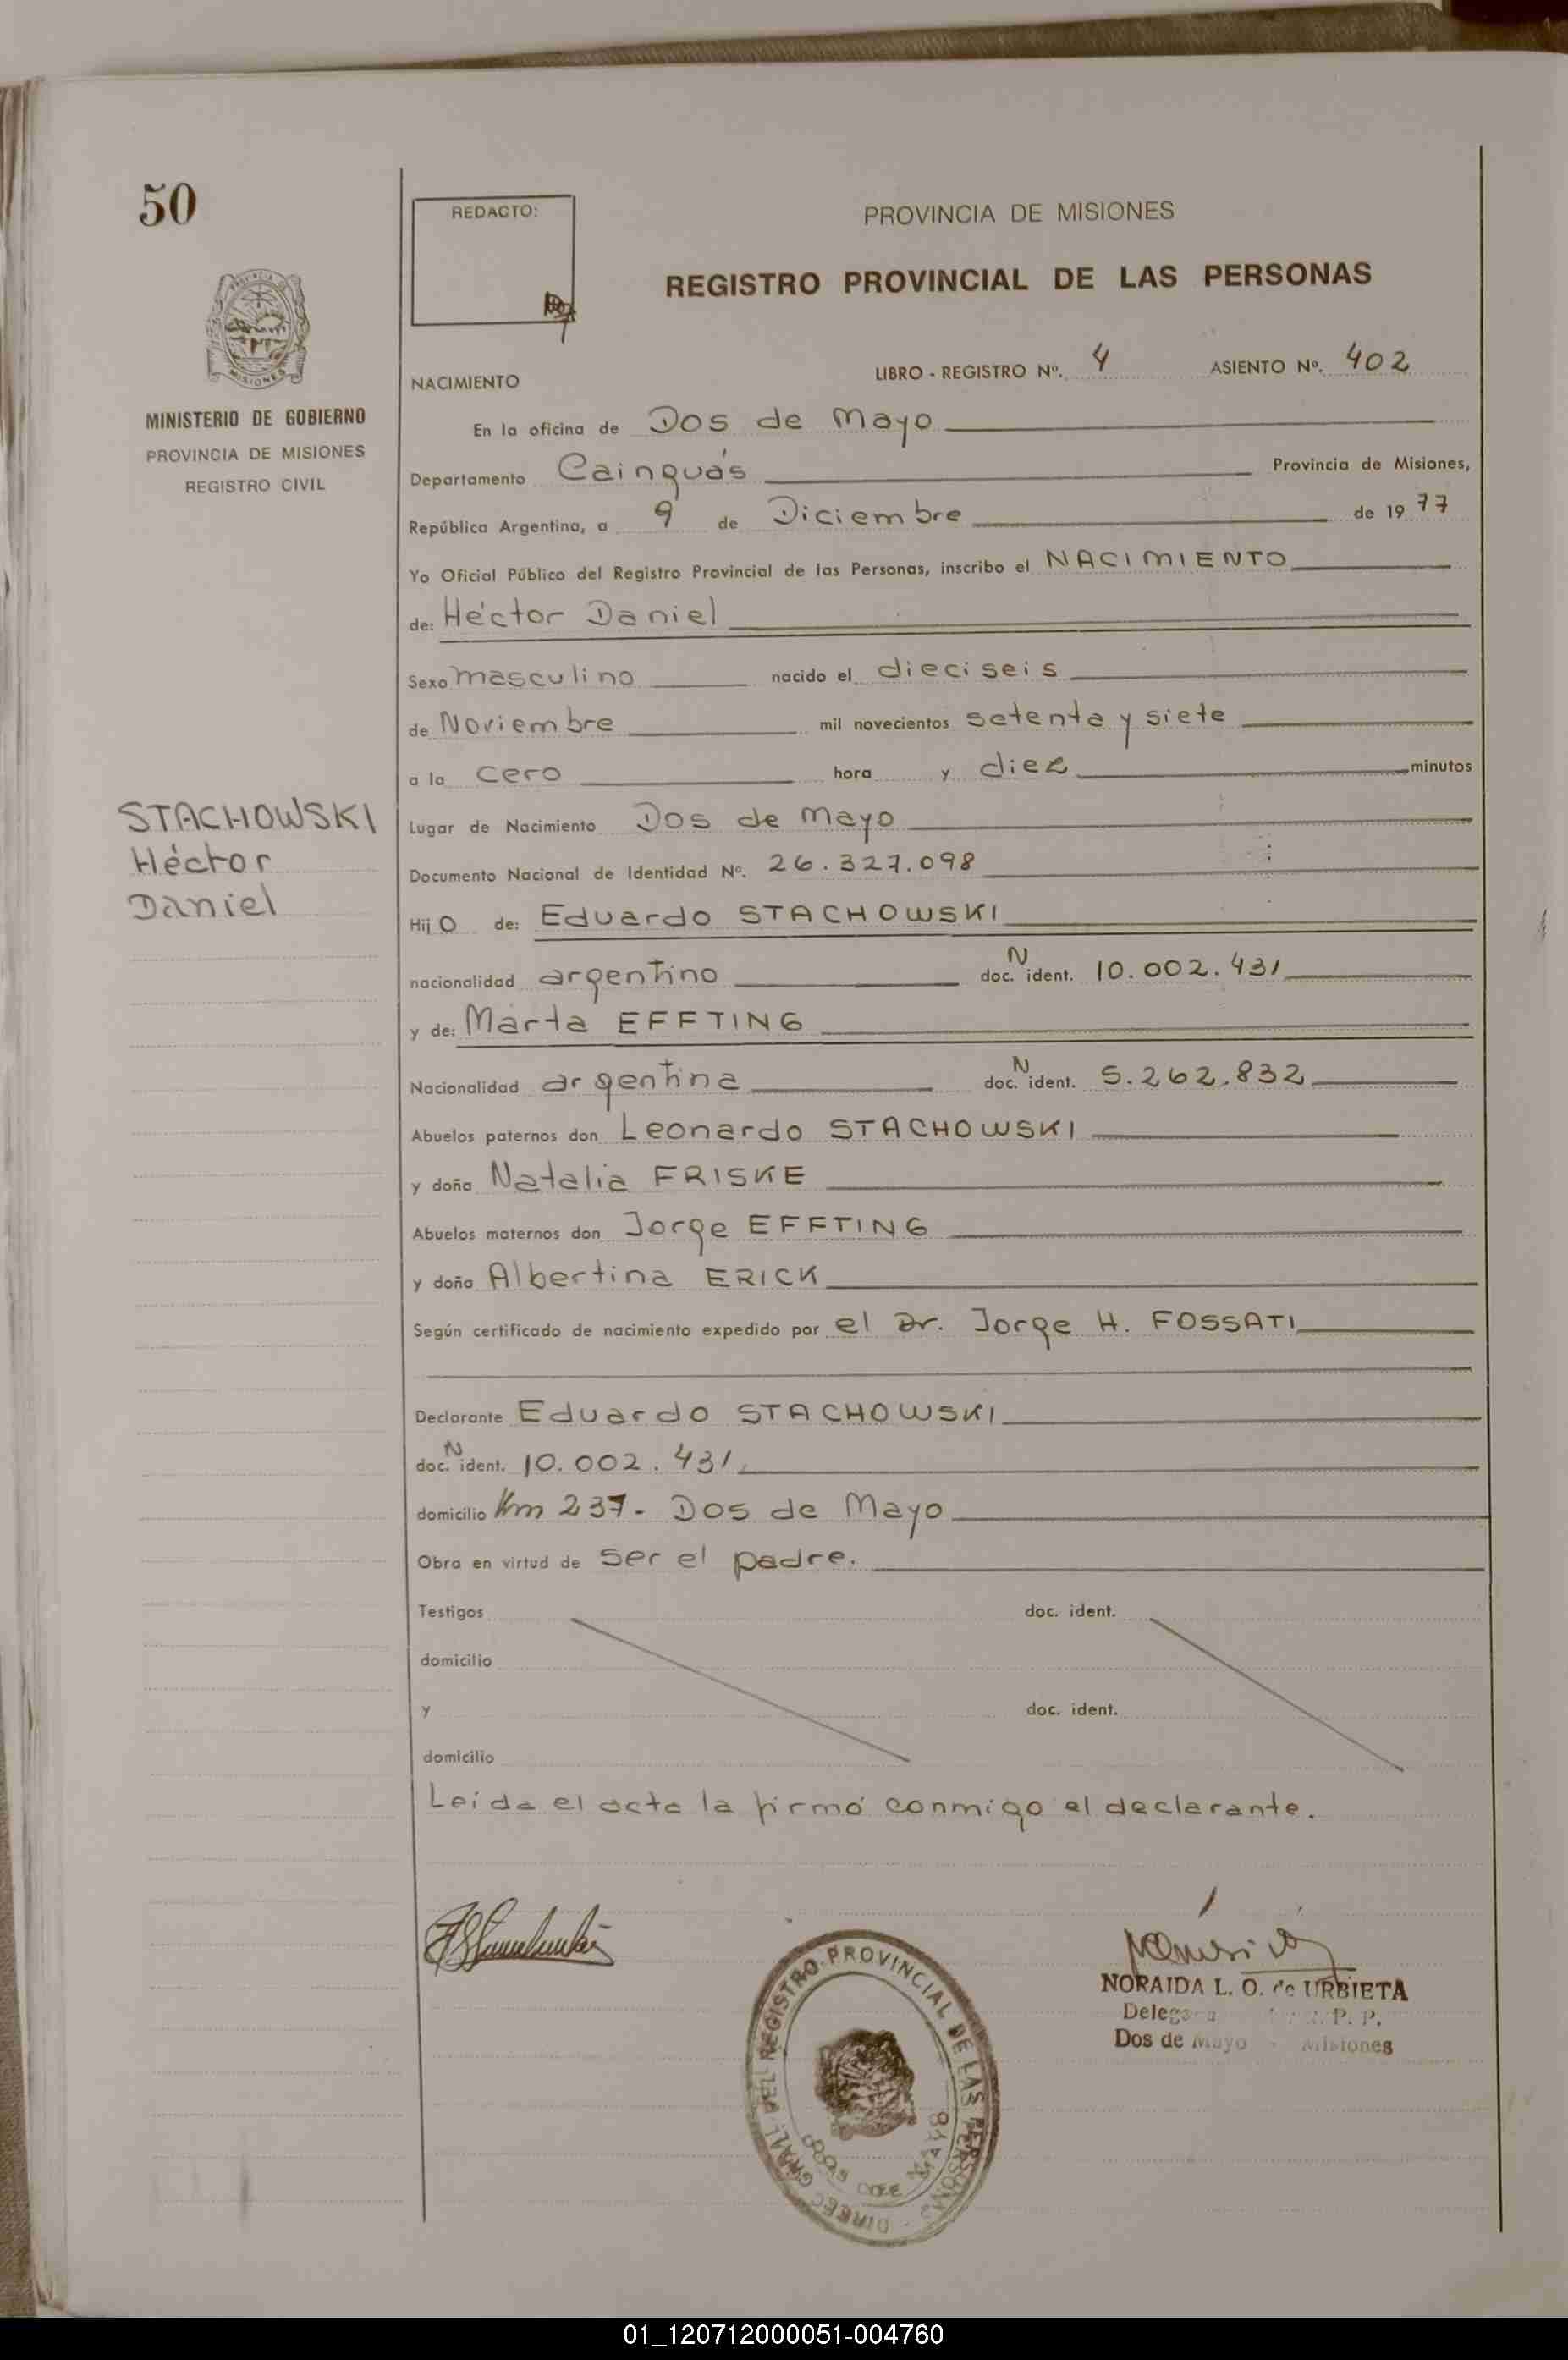 50
REDACTO:
PROVINCIA DE MISIONES
REGISTRO PROVINCIAL DE LAS PERSONAS
MINISTERIO DE GOBIERNO
PROVINCIA DE MISIONES
REGISTRO CIVIL
NACIMIENTO LIBRO - REGISTRO Nº. 4 ASIENTO Nº. 402
En la oficina de Dos de Mayo
Departamento Cainguás Provincia de Misiones,
República Argentina, a 9 de Diciembre de 1977
Yo Oficial Público del Registro Provincial de las Personas, inscribo el NACIMIENTO
de: Héctor Daniel
Sexo masculino nacido el dieciseis
de Noviembre mil novecientos setenta y siete
a la cero hora y diez minutos
STACHOWSKI
Héctor
Daniel
Lugar de Nacimiento Dos de Mayo
Documento Nacional de Identidad Nº. 26.327.098
Hijo de: Eduardo STACHOWSKI
nacionalidad argentino doc. N ident. 10.002.431
y de: Marta EFFTING
Nacionalidad argentina doc. N ident. 5.262.832
Abuelos paternos don Leonardo STACHOWSKI
y doña Natalia FRISKE
Abuelos maternos don Jorge EFFTING
y doña Albertina ERICK
Según certificado de nacimiento expedido por el Dr. Jorge H. FOSSATI
Declarante Eduardo STACHOWSKI
doc. N ident. 10.002.431
domicilio Km 237- Dos de Mayo
Obra en virtud de ser el padre.
Testigos doc. ident.
domicilio
y doc. ident.
domicilio
Leída el acta la firmó conmigo el declarante.
NORAIDA L. O. de URBIETA
P. P.
Dos de Mayo - Misiones
DIREC. GRAL. DEL REGISTRO PROVINCIAL DE LAS PERSONAS
DOS DE MAYO
01_120712000051-004760